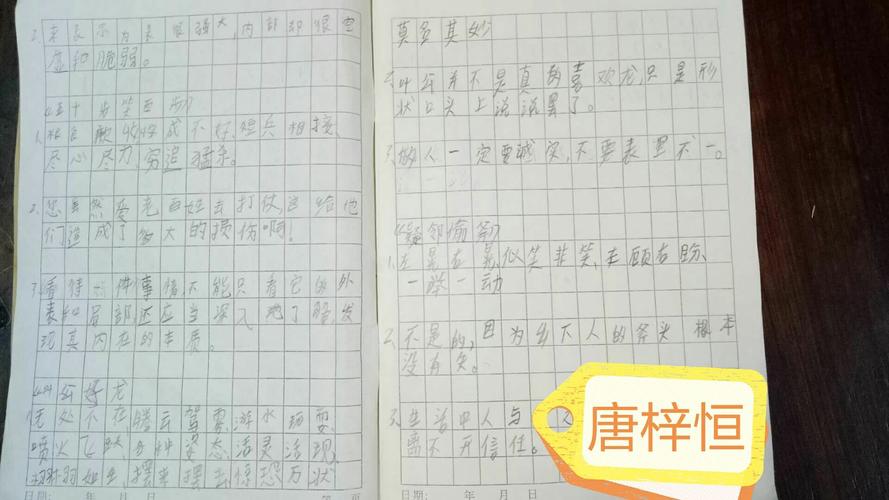 2、来表示为表 很强大,内部却很空
虚和脆弱。
《五十步笑百步》
1、粮食 歉收收成不好、短兵相接、
尽心尽力、穷追猛杀。
2、您虽然爱 百姓去打仗,这给他
们造成了多大的损伤啊!
3、看待一件事情,不能只看它的外
表和局部,还应当深入地了解,发
现其内在的本质。
《叶公好龙
无处不在、腾云驾雾、游水玩耍、
喷火飞跃、各种姿态、活灵活现、
栩栩如生、摆来摆去、惊恐万状
日期: 年 月 日 第 页
莫名其妙
2、叶公并不是真的喜欢龙,只是形
状口头上说说罢了。
3、做人一定要诚实,不要表里不一。
《疑邻偷斧》
1、左晃右晃、似笑非笑、左顾右盼、
一举一动
2、不是的,因为乡下人的斧头 根本
没有失。
3、生活中人与
离不开信任。
日期: 年 月 日
唐梓恒